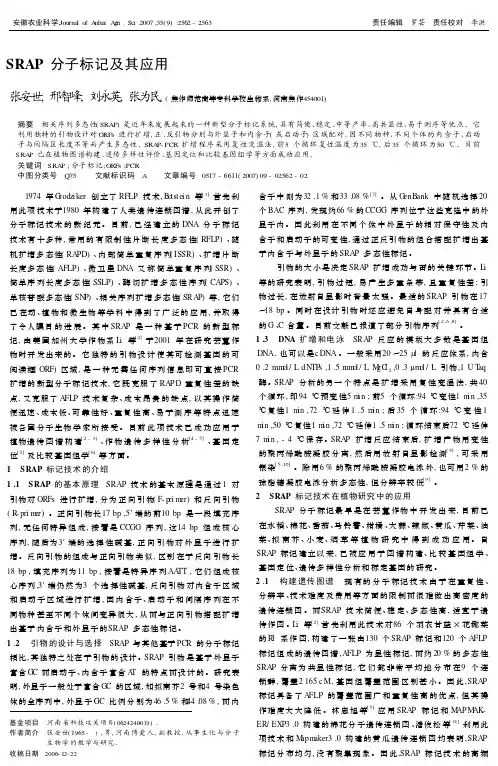 安徽农业科学,Journal of Anhui Agri. Sci. 2007,35(9):2562-2563
责任编辑 罗芸 责任校对 李洪
SRAP 分子标记及其应用
张安世, 邢智峰, 刘永英, 张为民 (焦作师范高等专科学校生物系,河南焦作454001)
摘要 相关序列多态性(SRAP)是近年来发展起来的一种新型分子标记系统,具有简便、稳定、中等产率、高共显性、易于测序等优点。它
利用独特的引物设计对ORFs 进行扩增,正、反引物分别与外显子和内含子(或启动子)区域配对,因不同物种、不同个体的内含子、启动
子与间隔区长度不等而产生多态性。SRAP-PCR 扩增程序采用复性变温法,前5 个循环复性温度为35 ℃,后35 个循环为50 ℃。目前
SRAP 已在植物图谱构建、遗传多样性评价、基因定位和比较基因组学等方面成功应用。
关键词 SRAP;分子标记;ORFs;PCR
中图分类号 Q75 文献标识码 A 文章编号 0517-6611(2007)09-02562-02
1974 年Grodziker 创立了RFLP 技术,Botstein 等[1]首先利
用此项技术于1980 年构建了人类遗传连锁图谱,从此开创了
分子标记技术的新纪元。目前,已经建立的DNA 分子标记
技术有十多种,常用的有限制性片断长度多态性(RFLP)、随
机扩增多态性(RAPD)、内部简单重复序列(ISSR)、扩增片断
长度多态性(AFLP)、微卫星DNA 又称简单重复序列(SSR)、
简单序列长度多态性(SSLP)、酶切扩增多态性序列(CAPS)、
单核苷酸多态性(SNP)、相关序列扩增多态性(SRAP)等,它们
已在动、植物和微生物等学科中得到了广泛的应用,并取得
了令人瞩目的进展。其中SRAP 是一种基于PCR 的新型标
记,由美国加州大学作物系Li 等[2]于2001 年在研究芸薹作
物时开发出来的。它独特的引物设计使其可检测基因的可
阅读框(ORFs)区域,是一种无需任何序列信息即可直接PCR
扩增的新型分子标记技术,它既克服了RAPD 重复性差的缺
点,又克服了AFLP 技术复杂、成本昂贵的缺点,以其操作简
便迅速、成本低、可靠性好、重复性高、易于测序等特点迅速
被各国分子生物学家所接受。目前此项技术已成功应用于
植物遗传图谱构建[2-3]、作物遗传多样性分析[4-5]、基因定
位[2]及比较基因组学[6]等方面。
1 SRAP 标记技术的介绍
1.1 SRAP 的基本原理 SRAP 技术的基本原理是通过1 对
引物对ORFs 进行扩增,分为正向物(F-primer)和反向物
(R-primer)。正向物长17 bp,5'端的前10 bp 是一段填充序
列,无任何特异组成,接着是CCGG 序列,这14 bp 组成核心
序列,随后为3' 端的选择性碱基,正向物对外显子进行扩
增。反向引物的组成与正向引物类似,区别在于反向引物长
18 bp,填充序列为11 bp,接着是特异序列AATT,它们组成核
心序列,3' 端仍然为3 个选择性碱基,反向引物对内含子区域
和启动子区域进行扩增,因内含子、启动子和间隔序列在不
同物种甚至不同个体间变异很大,从而与正向引物搭配扩增
出基于内含子和外显子的SRAP 多态性标记。
1.2 引物的设计与选择 SRAP 与其他基于PCR 的分子标记
相比,其独特之处在于引物的设计。SRAP 引物是基于外显子
富含GC 而启动子、内含子富含AT 的特点而设计的。研究表
明,外显子一般位于富含GC 的区域,如拟南芥2 号和4 号染色
体的全序列中,外显子GC 比例分别为46.5 %和44.08 %,而内
基金项目 河南省科技攻关项目(0624240019)。
作者简介 张安世(1966- ),男,河南博爱人,副教授,从事生化与分子
生物学的教学与研究。
收稿日期 2006-12-22
含子中则为32.1 %和33.08 %[7]。从GenBank 中随机选择20
个BAC 序列,发现约66 %的CCGG 序列位于这些克隆中的外
显子内。因此利用在不同个体中外显子的相对保守性及内
含子和启动子的可变性,通过正反引物的组合搭配扩增出基
于内含子与外显子的SRAP 多态性标记。
引物的大小是决定SRAP 扩增成功与否的关键环节。Li
等的研究表明,引物过短,易产生多重条带,且重复性差;引
物过长,在放射自显影时背景太强。最适的SRAP 引物在17
~18 bp。同时在设计引物时还应避免自身配对并具有合适
的G、C 含量。目前文献已报道了部分引物序列
1.3 DNA 扩增和电泳 SRAP 反应的模板大多数是基因组
DNA, 也可以是cDNA。一般采用20~25 μl 的反应体系,内含
0.2 mmol/L dNTPs,1.5 mmol/L MgCl2,0.3 μmol/L 引物,1 U Taq
酶。SRAP 分析的另一个特点是扩增采用复性变温法,共40
个循环,即94 ℃预变性5 min;前5 个循环:94 ℃变性1 min,35
℃复性1 min,72 ℃延伸1.5 min;后35 个循环:94 ℃变性1
min,50 ℃复性1 min,72 ℃延伸1.5 min;循环结束后72 ℃延伸
7 min,-4 ℃保存。SRAP 扩增反应结束后,扩增产物用变性
的聚丙烯酰胺凝胶分离,然后用放射自显影检测[2],可采用
银染[5,10]。除用6 %的聚丙烯酰胺凝胶电泳外,也可用2 %的
琼脂糖凝胶电泳分析多态性,但分辨率较低[9]。
2 SRAP 标记技术在植物研究中的应用
SRAP 分子标记最早是在芸薹作物中开发出来,目前已
在水稻、棉花、番茄、马铃薯、柑橘、大蒜、辣椒、黄瓜、芹菜、油
菜、拟南芥、小麦、烟草等植物研究中得到成功应用。自
SRAP 标记建立以来,已被应用于图谱构建、比较基因组学、
基因定位、遗传多样性分析和标定基因的研究。
2.1 构建遗传图谱 现有的分子标记技术由于在重复性、
分辨率、技术难度及费用等方面的限制而很难做出高密度的
遗传连锁图。而SRAP 技术简便、稳定、多态性高,适宜于遗
传作图。Li 等[2]首先利用此技术对86 个羽衣甘蓝×花椰菜
的RI 系作图,构建了一张由130 个SRAP 标记和120 个AFLP
标记组成的遗传图谱,AFLP 为显性标记,而约20 %的多态性
SRAP 分离为共显性标记,它们都非常平均地分布在9 个连
锁群,覆盖2 165 cM,基因组覆盖范围区别甚小。因此,SRAP
标记具备了AFLP 的覆盖范围广和重复性高的优点,但其操
作难度大大降低。林忠旭等[3]应用SRAP 标记和MAPMAK-
ER/EXP3.0 构建的棉花分子遗传连锁图、潘俊松等[11]利用此
项技术和Mapmaker3.0 构建的黄瓜遗传连锁图均表明,SRAP
标记分布均匀,没有聚集现象。因此,SRAP 标记技术的高频